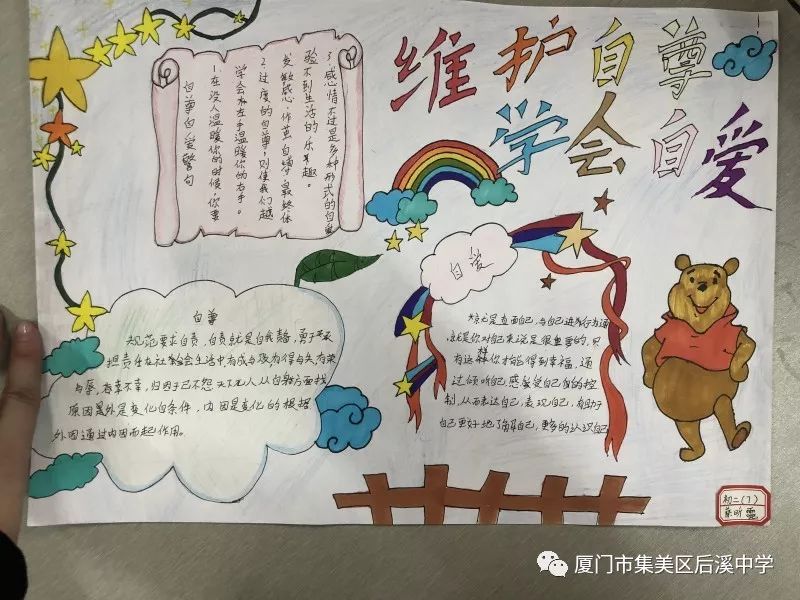 维护自尊
学会自爱
自尊自爱警句
1.在没人温暖你的时候，你要
学会用左手温暖你的右手。
2.过度的自尊，则使我们越
发敏感
验不到生活的乐趣。
3.感情不过是多种形式的自爱
自尊
规范要求自责，自责就是自我
担责任在社会生活中有成与败为得与失有荣
与辱，有幸不幸，归因于己不怨天不尤人从自身方面找
原因是外是变化的条件，内因是变化的根据，
外因通过内因而起作用。
自爱
就是直面自己，与自己进行沟通
就是你对自己来说是很重要的，只
有这样你才能得到幸福，通
过倾听自己感受自己的控
制，从而表达自己，表现自己，有助于
自己更好地了解自己，更多的认识自己
初二(7)
厦门市集美区后溪中学